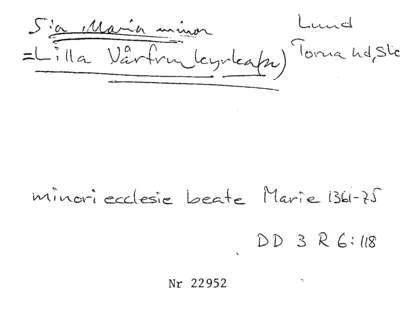 S:a Maria minor
Lund
=Lilla Vårfrukyrka
Torna hd, Sk
minori ecclesie beate Marie 1361-75
DD 3 R 6:118
Nr 22952